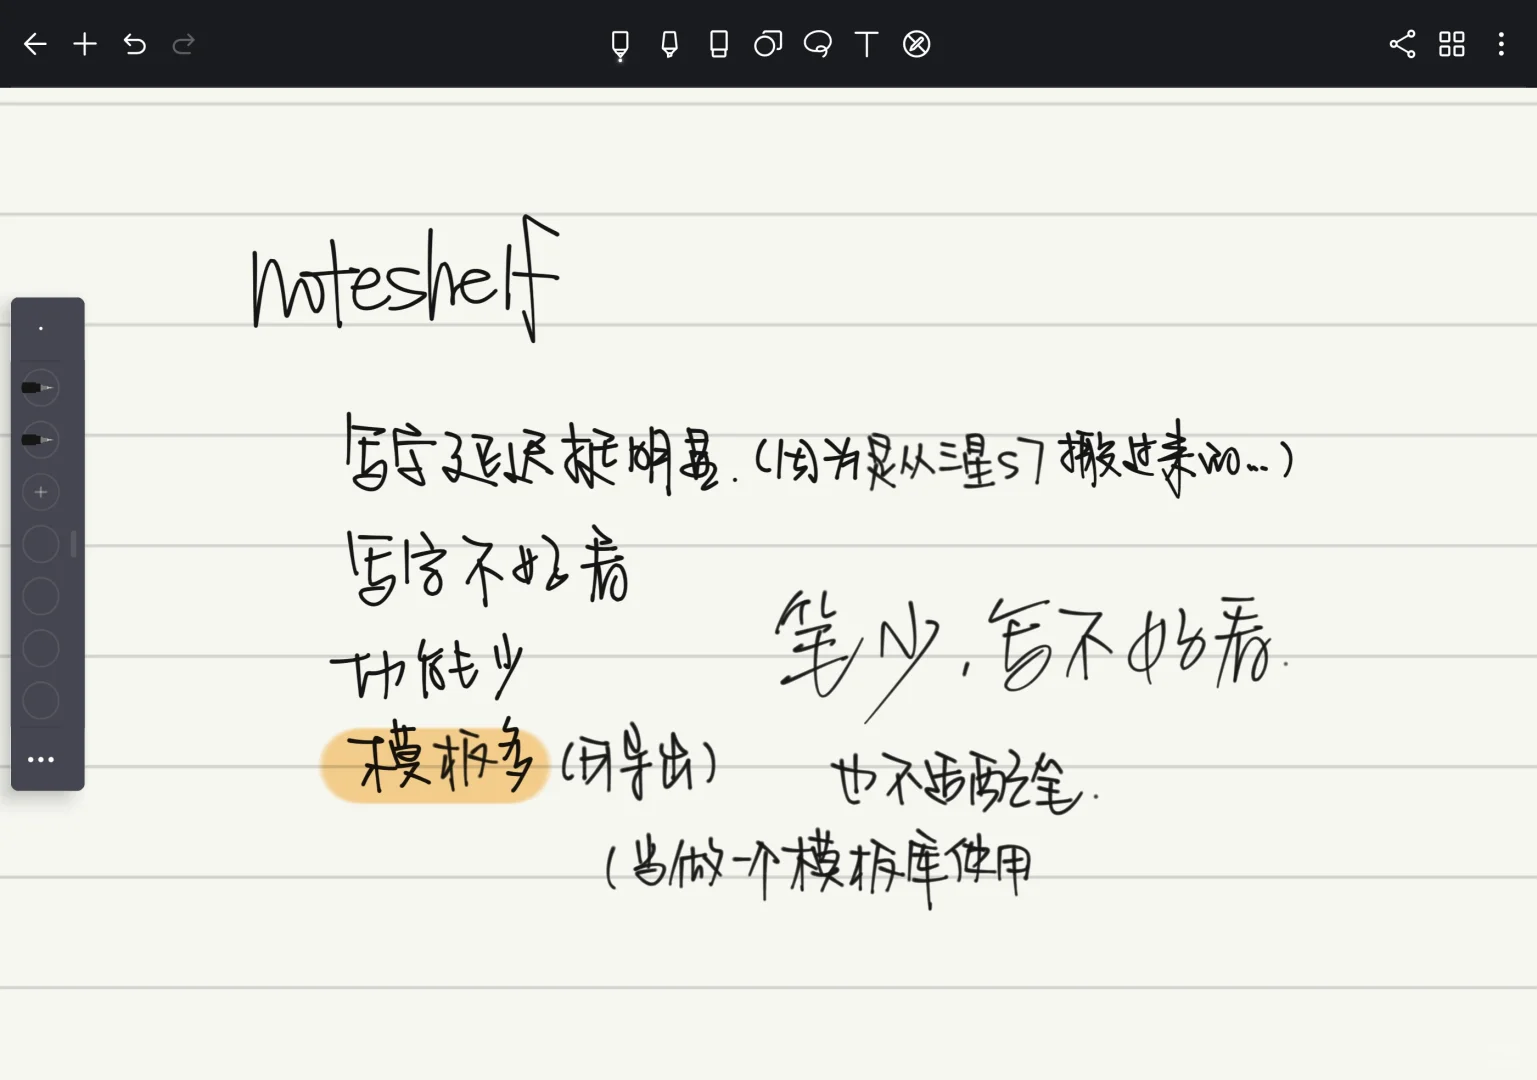 noteshelf
写字延迟挺明显.(因为是从三星S7搬过来的...)
写字不好看
笔少,写不好看.
功能少
模板多(可导出)
也不适配笔.
(当做一个模板库使用
T